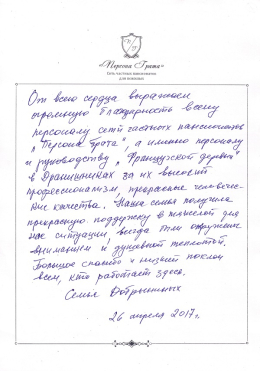 «Персона Грата»
Сеть частных пансионатов
для пожилых
От всего сердца выражаем
огромную благодарность всему
персоналу сети частных пансионатов
„Персона Грата", а именно персоналу
и руководству „Французской деревни"
в Дранишниках за их высокий
профессионализм, прекрасные человечес-
кие качества. Наша семья получила
прекрасную поддержку в тяжелой для
нас ситуации, всегда были окружены
вниманием и душевной теплотой.
Большое спасибо и низкий поклон
всем, кто работает здесь.
Семья Добрыниных
26 апреля 2017г.